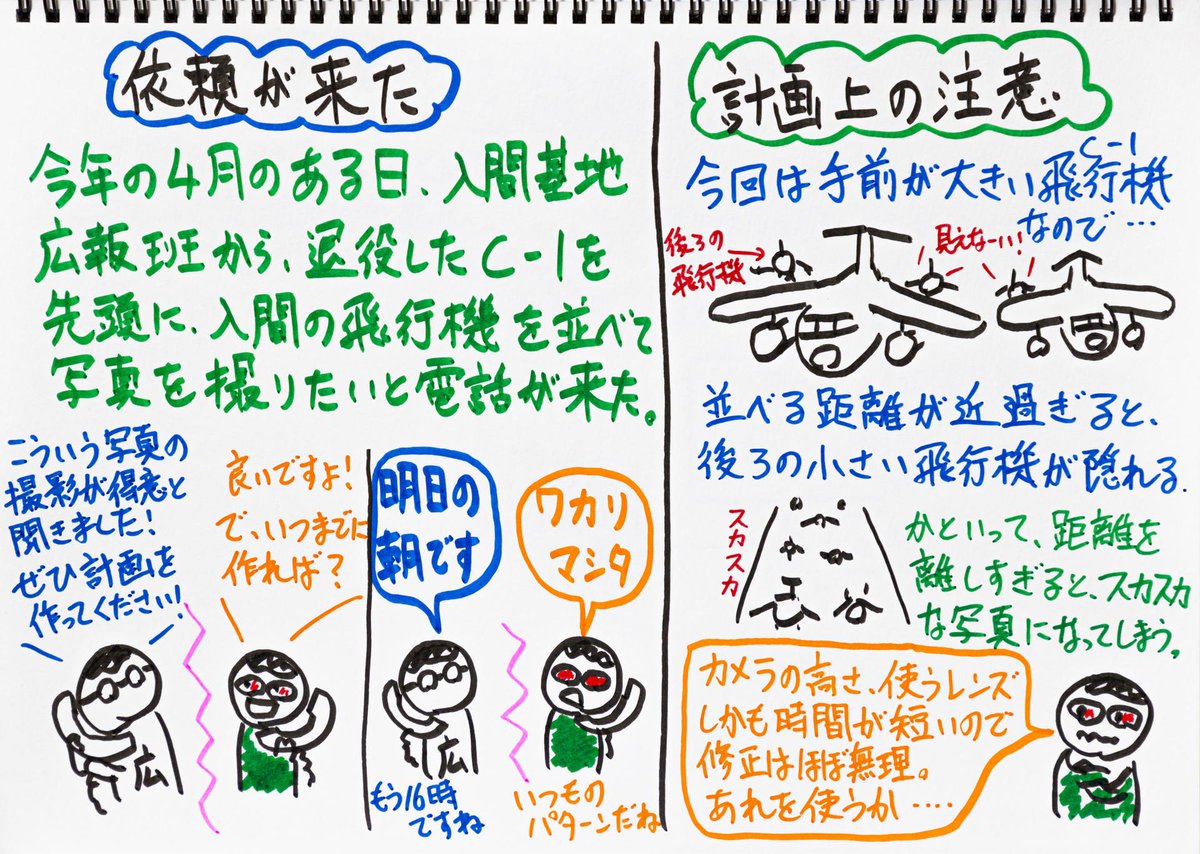 依頼が来た
今年の4月のある日、入間基地
広報班から、退役したC-1を
先頭に、入間の飛行機を並べて
写真を撮りたいと電話が来た。
こういう写真の
撮影が得意と
聞きました！
ぜひ計画を
作ってください！
良いですよ！
で、いつまでに
作れば？
広
明日の
朝です
ワカリ
マシタ
広
もう16時
ですね
いつもの
パターンだね
計画上の注意
C-1
今回は手前が大きい飛行機
なので…
後ろの
飛行機
見えなーい！！
並べる距離が近過ぎると、
後ろの小さい飛行機が隠れる.
スカスカ
かといって、距離を
離しすぎると、スカスカ
な写真になってしまう。
カメラの高さ、使うレンズ
しかも時間が短いので
修正はほぼ無理。
あれを使うか‥‥